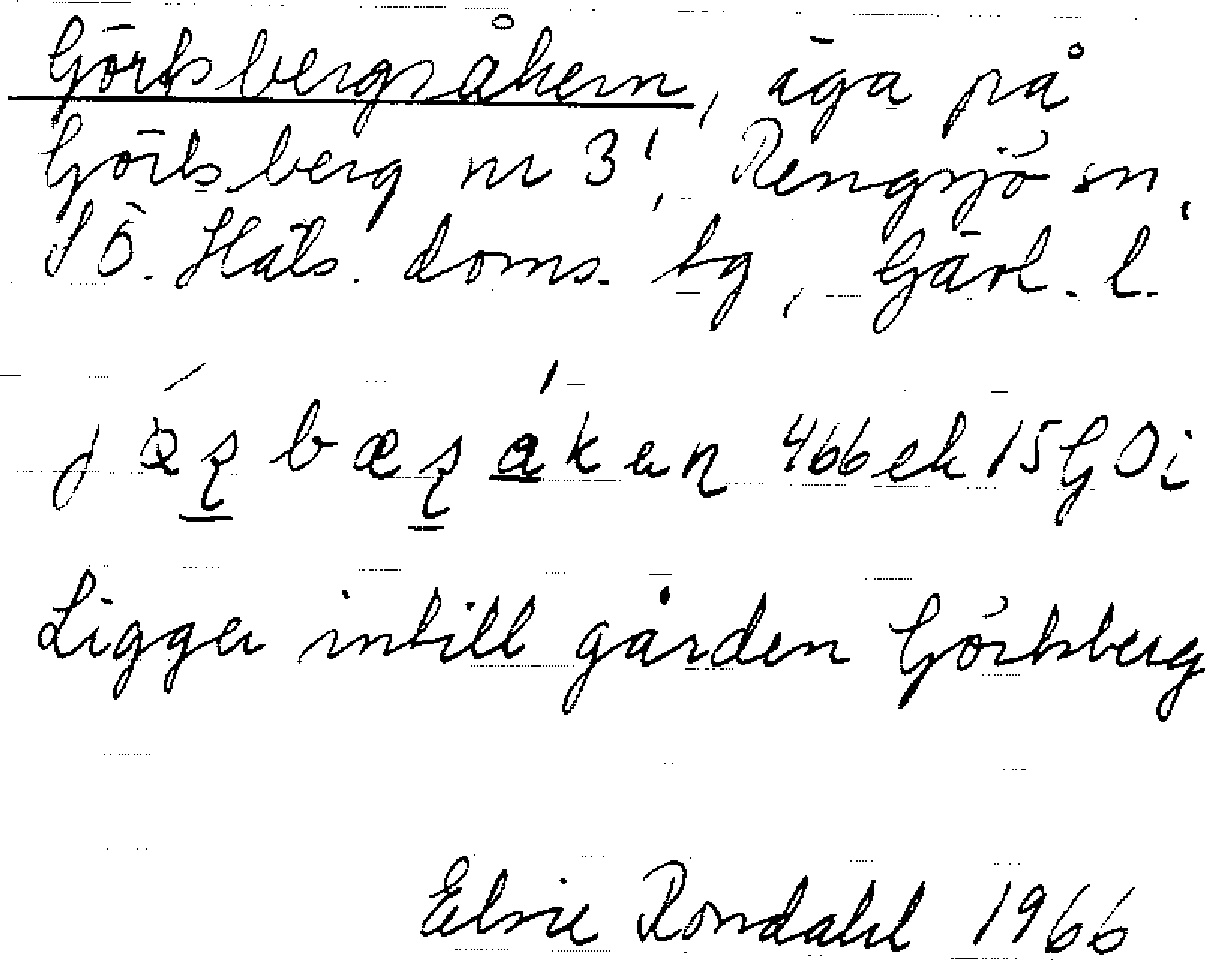 Görtsbergsåkern, äga på
Görtsberg nr 3¹, Rengsjö sn,
SÖ. Häls. doms. tg, Gävl. l.
466 ek 15 GDi
Ligger intill gården Görtsberg
Elsie Rondahl 1966